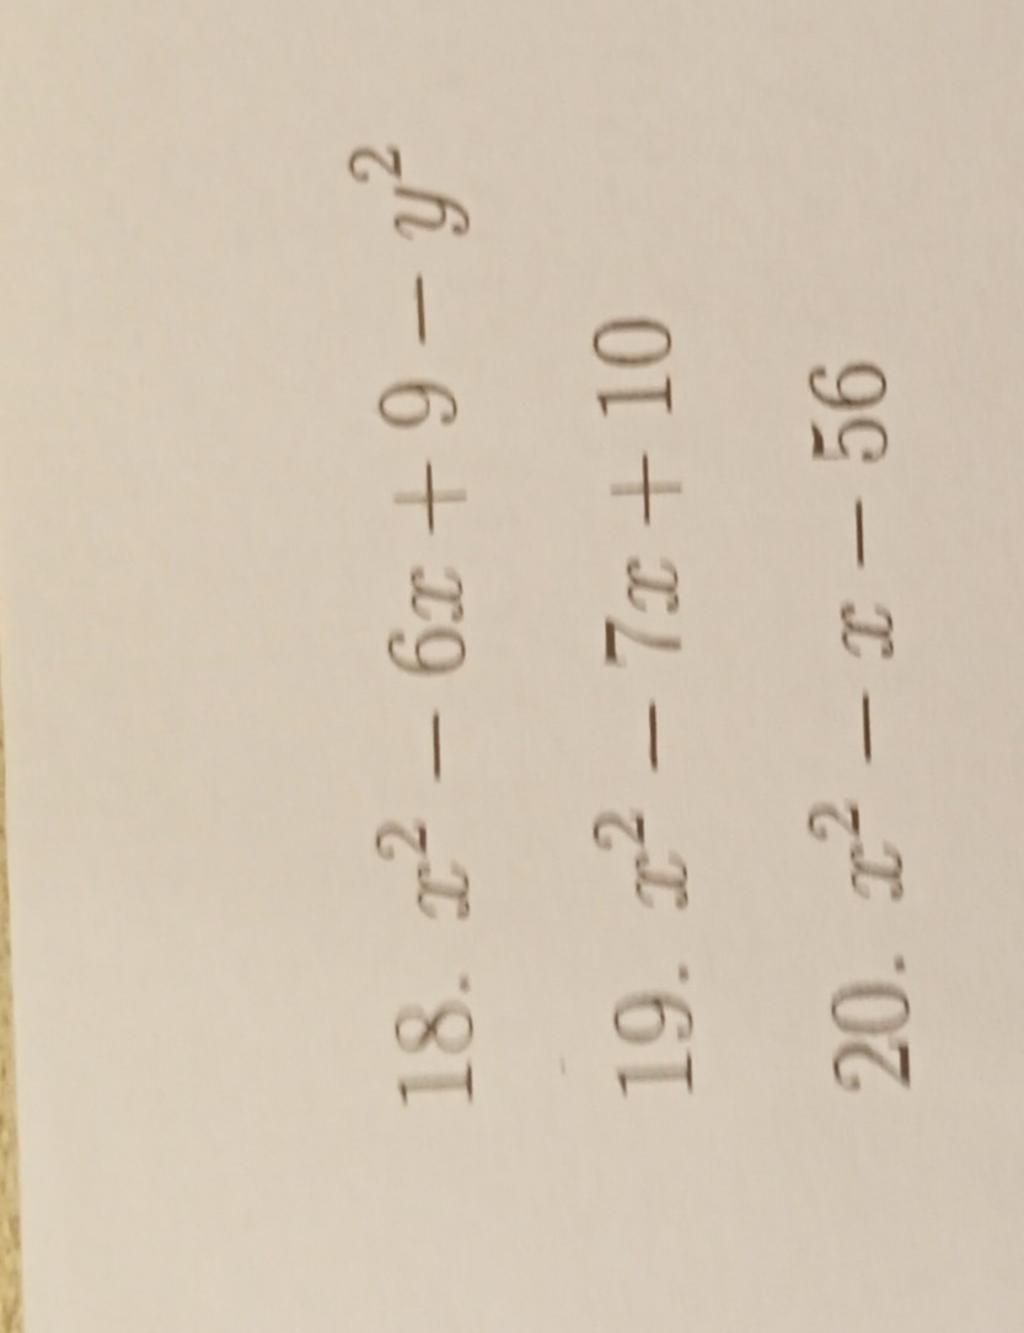 18. x² − 6x + 9 − y²
19. x² − 7x + 10
20. x² − x − 56